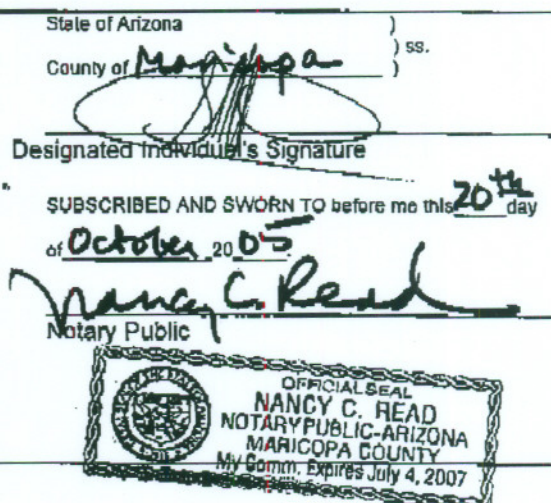 State of Arizona )
) ss.
County of Maricopa )
Designated Individual's Signature
SUBSCRIBED AND SWORN TO before me this 20th day
of October 2005.
Nancy C. Read
Notary Public
OFFICIAL SEAL
NANCY C. READ
NOTARY PUBLIC-ARIZONA
MARICOPA COUNTY
My Comm. Expires July 4, 2007